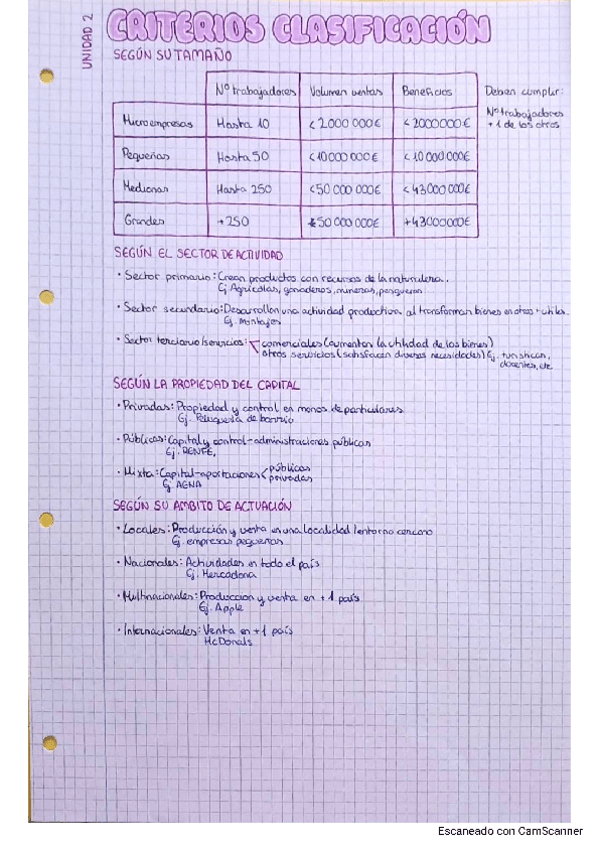 UNIDAD 2
CRITERIOS CLASIFICACIÓN
SEGÚN SU TAMAÑO
Nº trabajadores Volumen ventas Beneficios
Deben cumplir:
Nº trabajadores
+ 1 de los otros
Microempresas Hasta 10 <2000000€ <2000000€
Pequeñas Hasta 50 <10000000€ <10 000 000€
Medianas Hasta 250 <50 000 000€ <43000000€
Grandes +250 +50 000 000€ +43000000€
SEGÚN EL SECTOR DE ACTIVIDAD
· Sector primario: Crean productos con recursos de la naturaleza.
Ej Agrícolas, ganaderos, mineros, pesqueros
· Sector secundario: Desarrollan una actividad productiva al transforman bienes en otros + útiles.
Ej. montajes
· Sector terciario/servicios: comerciales (aumentan la utilidad de los bienes)
otros servicios (satisfacen diversas necesidades) Ej. turísticas,
docentes, etc
SEGÚN LA PROPIEDAD DEL CAPITAL
· Privadas: Propiedad y control en manos de particulares
Ej. Peluquería de barrio
· Públicas: Capital y control-administraciones públicas
Ej. RENFE,
· Mixta: Capital-aportaciones públicas
privadas
Ej. AENA
SEGÚN SU AMBITO DE ACTUACIÓN
· Locales: Producción y venta en una localidad/entorno cercano
Ej. empresas pequeñas
· Nacionales: Actividades en todo el país
Ej. Mercadona
· Multinacionales: Produccion y venta en +1 país
Ej. Apple
· Internacionales: Venta en +1 país
McDonals
Escaneado con CamScanner